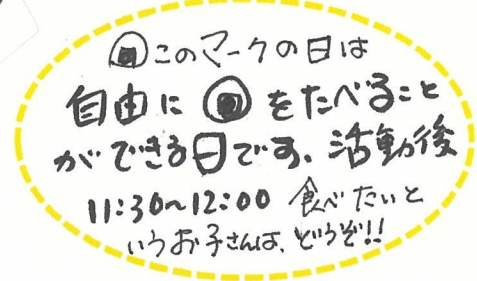 🍙このマークの日は
自由に🍙をたべること
ができる日です。活動後
11:30~12:00 食べたいと
いうお子さんは、どうぞ!!